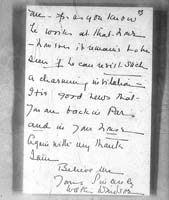 me - for as you know
he works at that hour
it remains to be
seen if he can resist such
a charming invitation -
It is good news that
you are back in
and in your
Again with my thanks
I am
Believe me
Yours Sincerely